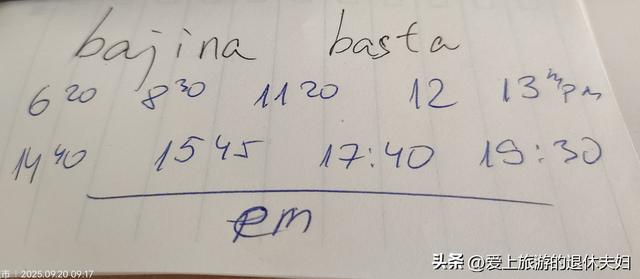 bajina basta
6 20 8 30 11 20 12 13 pm
14 40 15 45 17:40 19:30
pm
市:2025.09.20 09:17
头条 @爱上旅游的退休夫妇